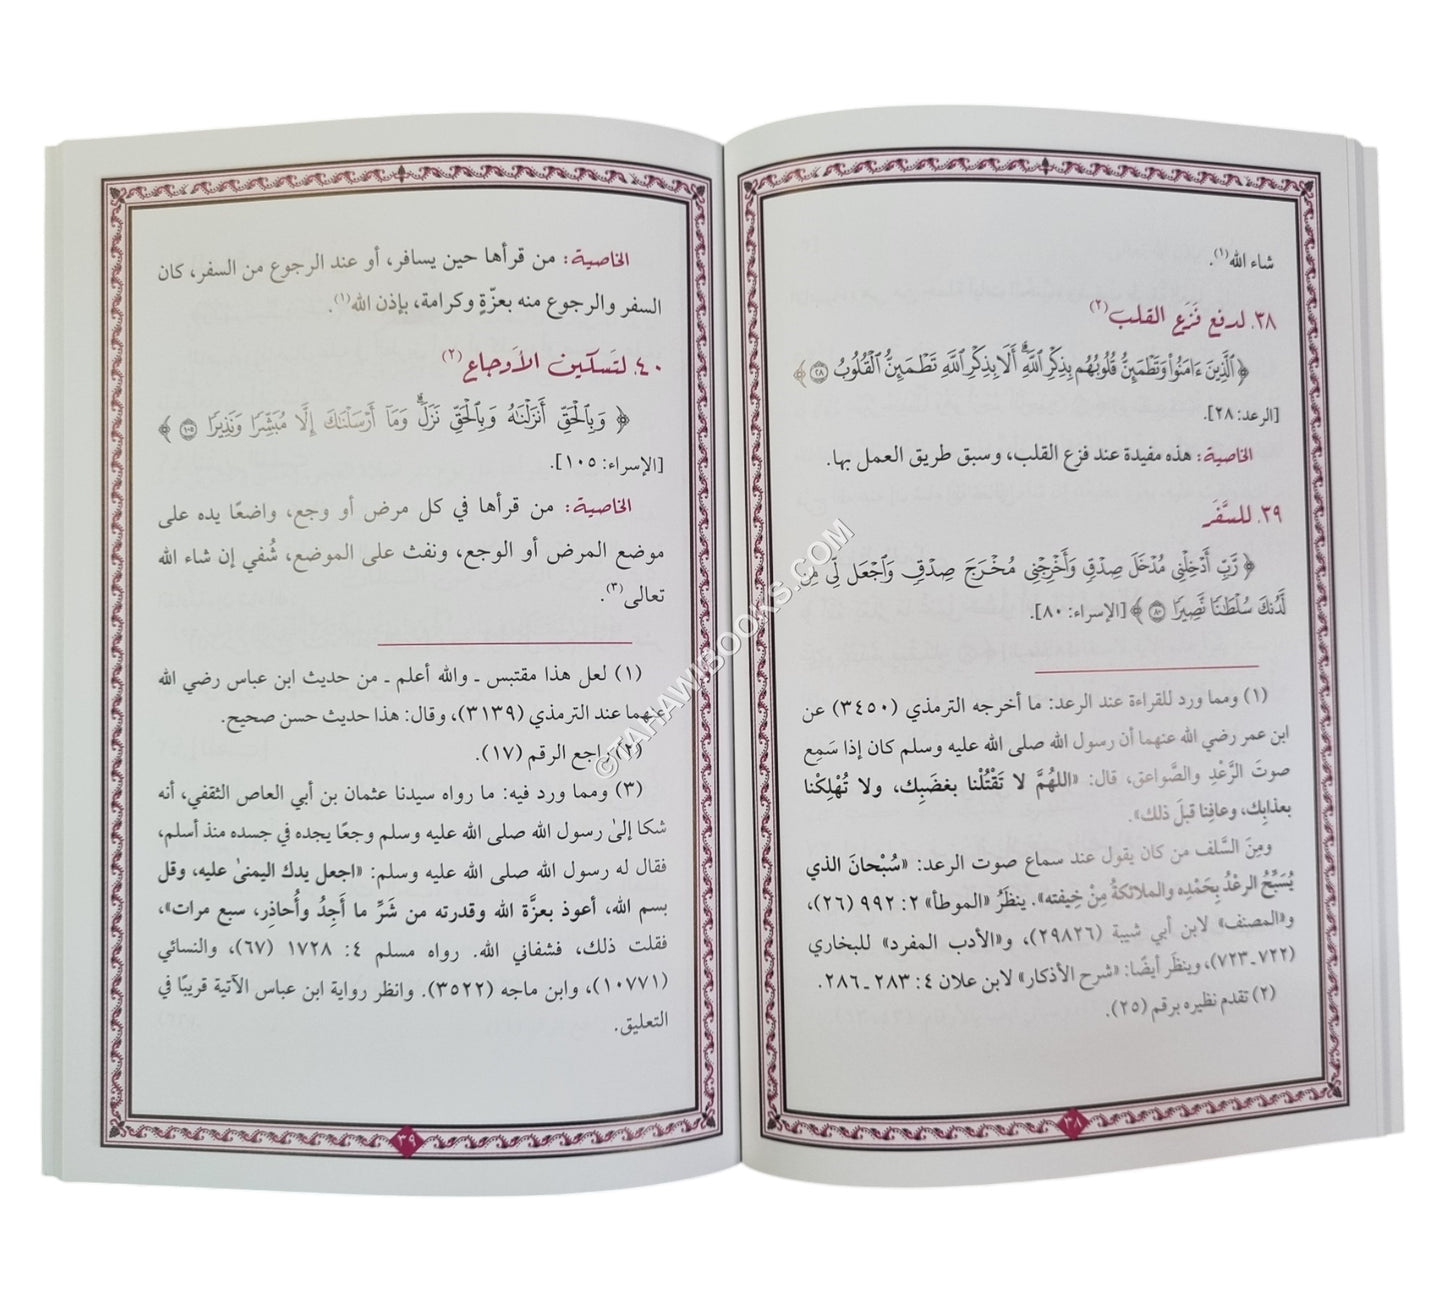 شاء الله(١).
٣٨. لدفع فَزَع القلب(٢)
﴿ ٱلَّذِينَ ءَامَنُوا۟ وَتَطْمَئِنُّ قُلُوبُهُم بِذِكْرِ ٱللَّهِ ۗ أَلَا بِذِكْرِ ٱللَّهِ تَطْمَئِنُّ ٱلْقُلُوبُ ۝٢٨ ﴾
[الرعد: ٢٨].
الخاصية: هذه مفيدة عند فزع القلب، وسبق طريق العمل بها.
٣٩. للسَّفَر
﴿ رَّبِّ أَدْخِلْنِى مُدْخَلَ صِدْقٍ وَأَخْرِجْنِى مُخْرَجَ صِدْقٍ وَٱجْعَل لِّى مِن
لَّدُنكَ سُلْطَـٰنًا نَّصِيرًا ۝٨٠ ﴾ [الإسراء: ٨٠].
(١) ومما ورد للقراءة عند الرعد: ما أخرجه الترمذي (٣٤٥٠) عن
ابن عمر رضي الله عنهما أن رسول الله صلى الله عليه وسلم كان إذا سَمِع
صوتَ الرَّعْدِ والصَّواعق، قال: «اللهُمَّ لا تَقْتُلْنا بغضَبِك، ولا تُهْلِكْنا
بعذابِك، وعافِنا قبلَ ذلك».
ومِنَ السَّلف من كان يقول عند سماع صوت الرعد: «سُبْحانَ الذي
يُسَبِّحُ الرعْدُ بِحَمْدِه والملائكةُ مِنْ خِيفته». ينظَرُ «الموطأ» ٢: ٩٩٢ (٢٦)،
و«المصنف» لابن أبي شيبة (٢٩٨٢٦)، و«الأدب المفرد» للبخاري
(٧٢٢ـ٧٢٣)، وينظَر أيضًا: «شرح الأذكار» لابن علان ٤: ٢٨٣ ـ ٢٨٦.
(٢) تقدم نظيره برقم (٢٥).
٣٨
الخاصية: من قرأها حين يسافر، أو عند الرجوع من السفر، كان
السفر والرجوع منه بعزّةٍ وكرامة، بإذن الله(١).
٤٠. لتَسكين الأَوجاع(٢)
﴿ وَبِٱلْحَقِّ أَنزَلْنَـٰهُ وَبِٱلْحَقِّ نَزَلَ ۗ وَمَآ أَرْسَلْنَـٰكَ إِلَّا مُبَشِّرًا وَنَذِيرًا ۝١٠٥ ﴾
[الإسراء: ١٠٥].
الخاصية: من قرأها في كل مرض أو وجع، واضعًا يده على
موضع المرض أو الوجع، ونفث على الموضع، شُفي إن شاء الله
تعالى(٣).
(١) لعل هذا مقتبس ـ والله أعلم ـ من حديث ابن عباس رضي الله
عنهما عند الترمذي (٣١٣٩)، وقال: هذا حديث حسن صحيح.
(٢) راجع الرقم (١٧).
(٣) ومما ورد فيه: ما رواه سيدنا عثمان بن أبي العاص الثقفي، أنه
شكا إلىٰ رسول الله صلى الله عليه وسلم وجعًا يجده في جسده منذ أسلم،
فقال له رسول الله صلى الله عليه وسلم: «اجعل يدك اليمنىٰ عليه، وقل
بسم الله، أعوذ بعزَّة الله وقدرته من شَرِّ ما أَجِدُ وأُحاذِر، سبع مرات»،
فقلت ذلك، فشفاني الله. رواه مسلم ٤: ١٧٢٨ (٦٧)، والنسائي
(١٠٧٧١)، وابن ماجه (٣٥٢٢). وانظر رواية ابن عباس الآتية قريبًا في
التعليق.
٣٩
©TAHAWIBOOKS.COM